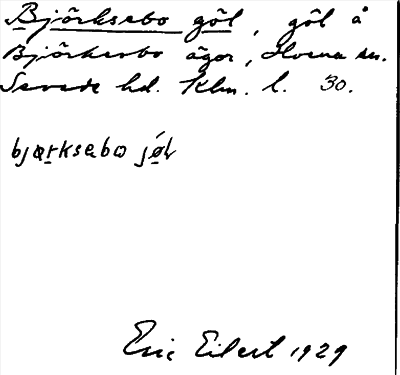 Björksebo göl, göl å
Björksebo ägor, sn.
Sevede hd. Klm. l. 30.
bjørksebo jøl
Eric Eilert 1929